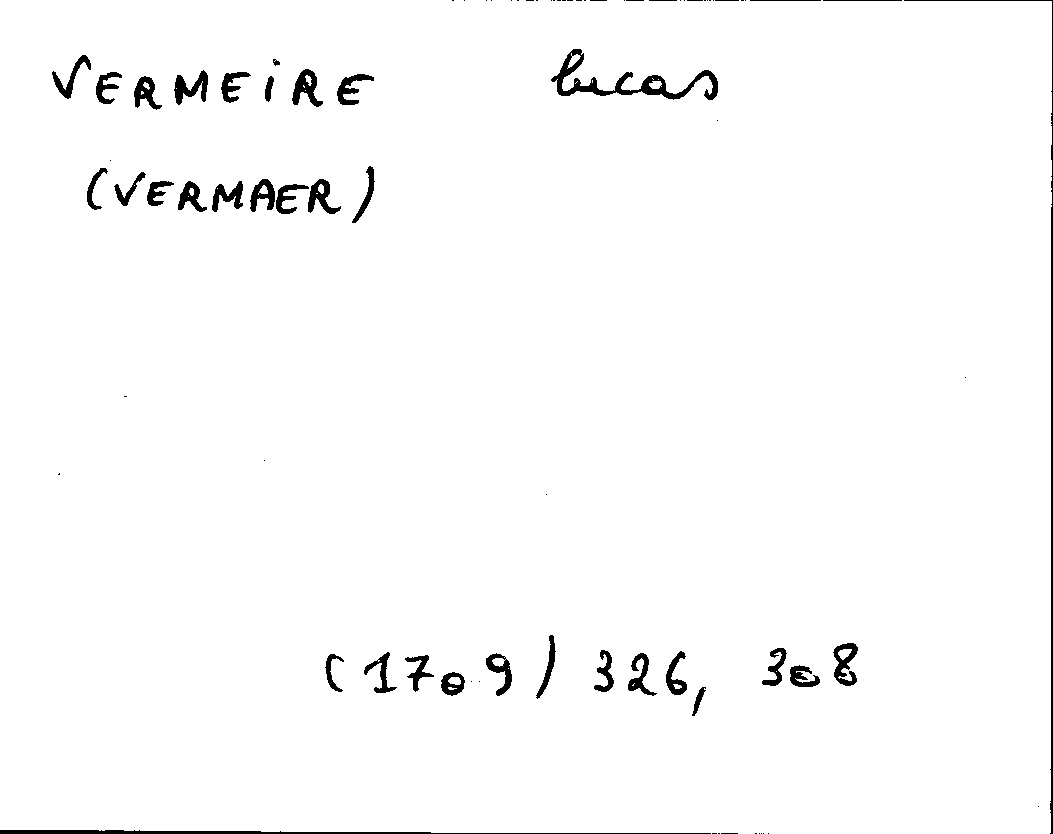 VERMEIRE lucas
(VERMAER)
(1709) 326, 308